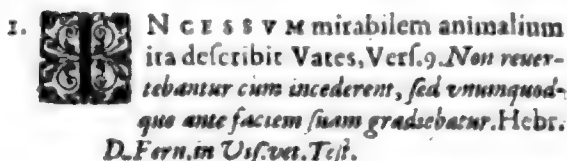 1. INCESSVM mirabilem animalium
ita deſcribit Vates, Verſ.9. Non reuer-
tebantur cum incederent, ſed vnumquod-
que ante faciem ſuam gradiebatur. Hebr.
D. Fern. in Viſ. vet. Teſt.